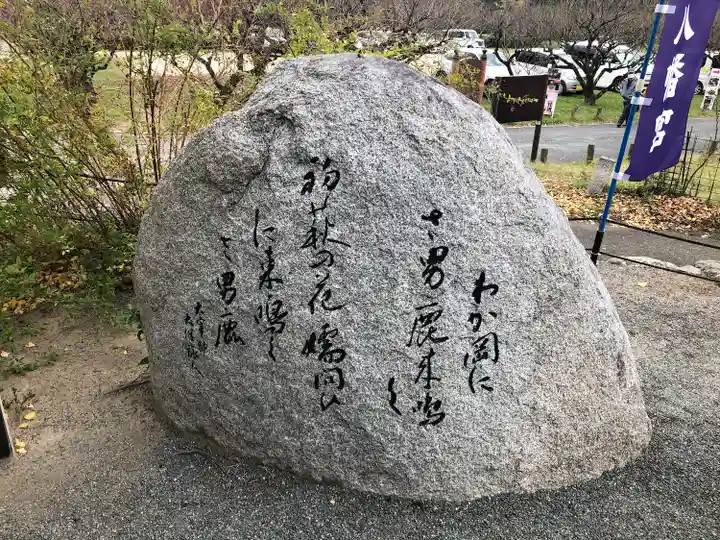 わが岡に
さ男鹿来鳴
く
初萩の花嬬問ひ
に来鳴く
さ男鹿
八幡宮